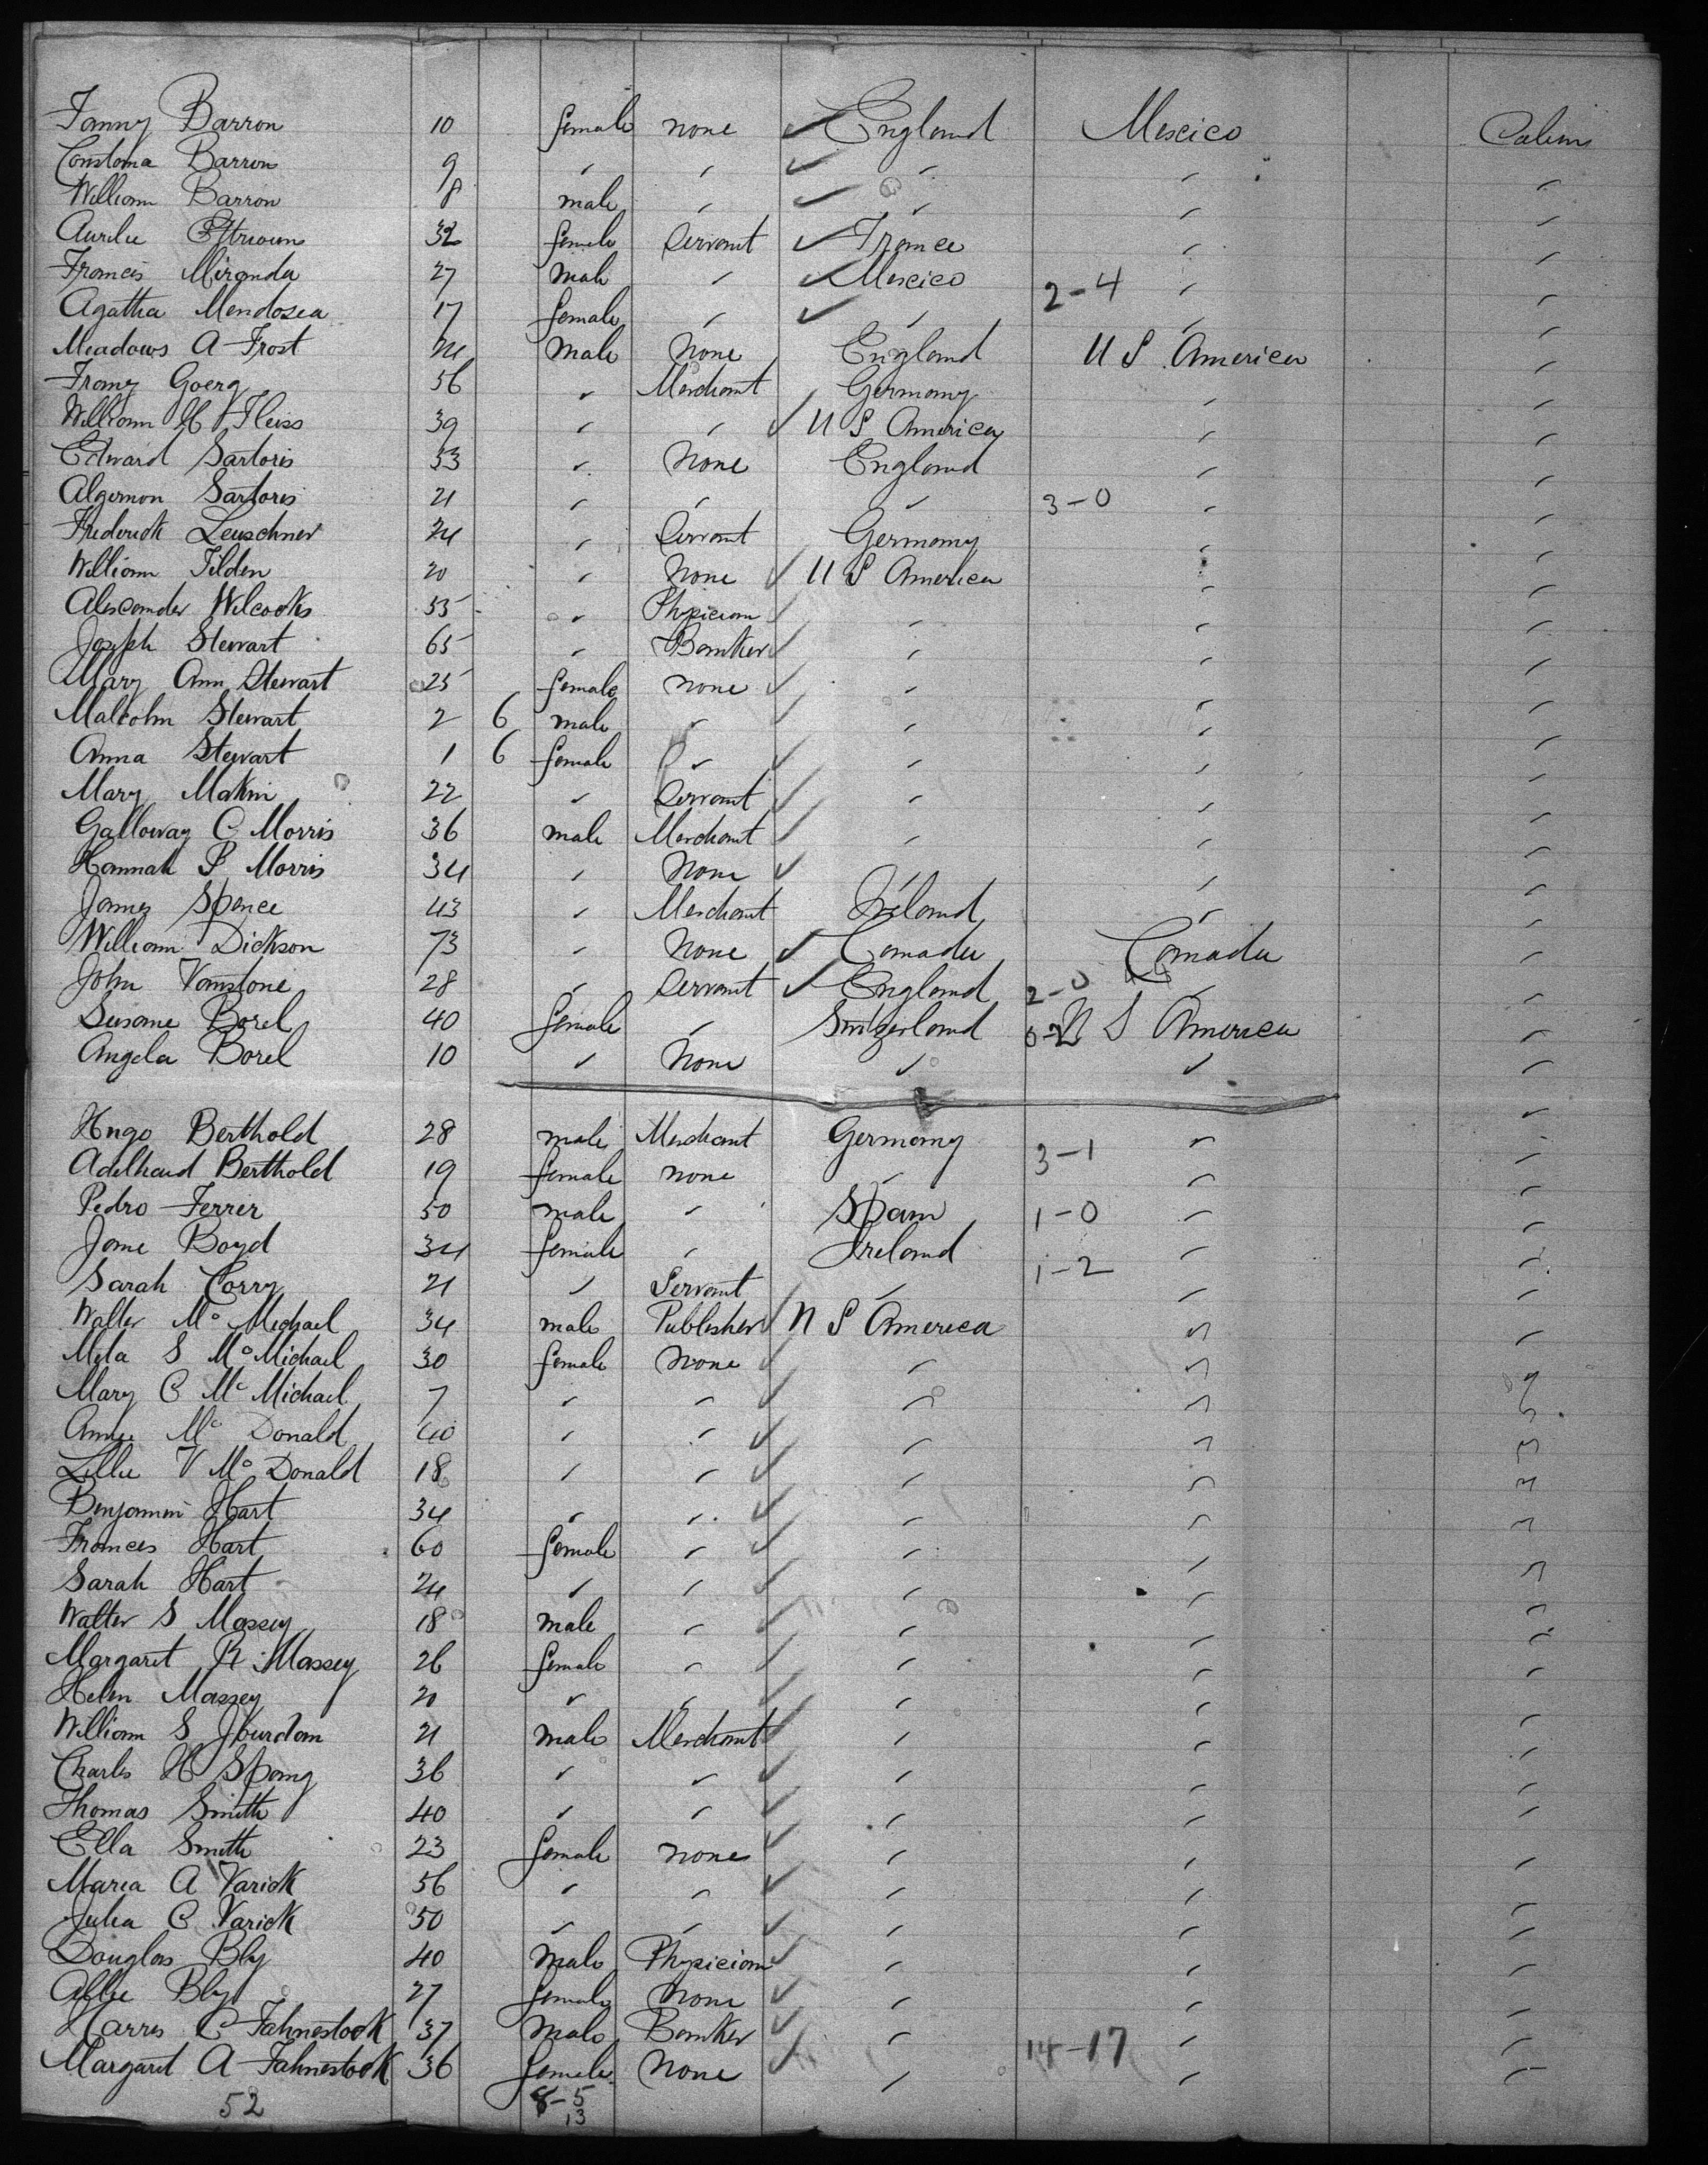 Fanny Barron 10 female none ✓ England Mexico Cabin
Constoma Barron 9 " " ✓ " " "
William Barron 8 male " ✓ " " "
Aurelie 32 female Servant ✓ France " "
Francis Miranda 27 male " ✓ Mexico 2-4 " "
Agatha Mendosea 17 female " ✓ " " "
Meadows A Frost 24 male None England U S America "
Franz Goerg 56 " Merchant Germany " "
William H Fleiss 39 " " ✓ U S America " "
Edward Sartoris 33 " None England " "
Algernon Sartoris 21 " " " 3-0 " "
Frederick Leuschner 24 " Servant Germany " "
William Tilden 20 " None ✓ U S America " "
Alexander Wilcocks 55 " Physician ✓ " " "
Joseph Stewart 65 " Banker ✓ " " "
Mary Ann Stewart 25 female none ✓ " " "
Malcolm Stewart 2 6 male " ✓ " " "
Anna Stewart 1 6 female " ✓ " " "
Mary Makin 22 " Servant ✓ " " "
Galloway C Morris 36 male Merchant ✓ " " "
Hannah P Morris 34 " None ✓ " " "
James Spence 43 " Merchant Ireland " "
William Dickson 73 " None ✓ Canada Canada "
John Vanstone 28 " Servant ✓ England 2-0 " "
Susanne Borel 40 female " Switzerland 0-2 U S America "
Angela Borel 10 " None " " "
Hugo Berthold 28 male Merchant Germany 3-1 " "
Adelhaid Berthold 19 female none " " "
Pedro Ferrer 50 male " Spain 1-0 " "
Jane Boyd 34 female " Ireland 1-2 " "
Sarah Corry 21 " Servant " " "
Walter Mc Michael 34 male Publisher ✓ U S America " "
Mela S McMichael 30 female None ✓ " " "
Mary C Mc Michael 7 " " ✓ " " "
Annie Mc Donald 40 " " ✓ " " "
Lillie V Mc Donald 18 " " ✓ " " "
Benjamin Hart 34 " " ✓ " " "
Frances Hart 60 female " ✓ " " "
Sarah Hart 24 " " ✓ " " "
Walter S Massey 18 male " ✓ " " "
Margaret R Massey 26 female " ✓ " " "
Helen Massey 20 " " ✓ " " "
William S Jourdan 21 male Merchant ✓ " " "
Charles H Spang 36 " " ✓ " " "
Thomas Smith 40 " " ✓ " " "
Ella Smith 23 female none ✓ " " "
Maria A Varick 56 " " ✓ " " "
Julia C Varick 50 " " ✓ " " "
Douglas Bly 40 male Physician ✓ " " "
Allie Bly 27 female None ✓ " " "
Harris C Fahnestock 37 male Banker ✓ " 14-17 " "
Margaret A Fahnestock 36 female None ✓ " " "
52 8-5
13